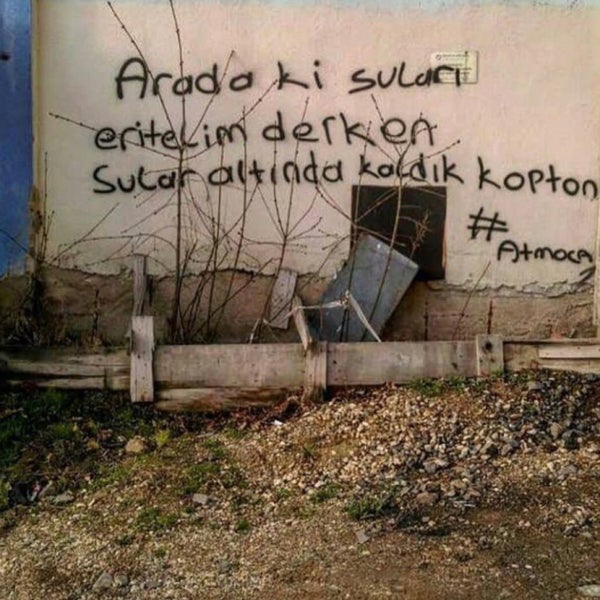 Arada ki suları
eritelim derken
Sular altında kaldık kopton
#Atmaca